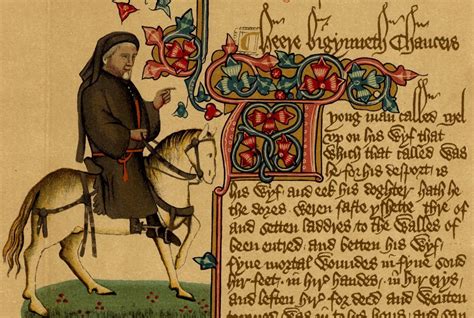 Heere bigynneth Chaucers
A yong man called Mel
vp on his wyf that
which that called was
he for his desport is
his wyf and eek his doghter hath he
the dores weren faste yshette thre of
and setten laddres to the walles of
been entred / and betten his wyf /
fyue mortal woundes in fyue son
hir feet / in hir handes / in hir erys /
and leften hir for deed and wenten
was in to his hous and